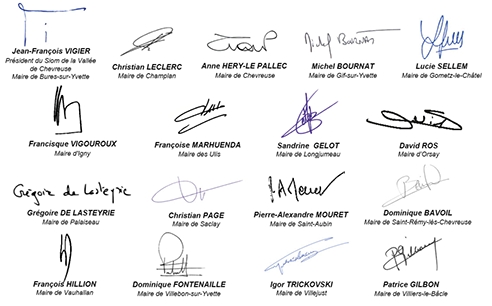 Jean-François VIGIER
Président du Siom de la Vallée
de Chevreuse
Maire de Bures-sur-Yvette
Christian LECLERC
Maire de Champlan
Anne HERY-LE PALLEC
Maire de Chevreuse
Michel BOURNAT
Michel BOURNAT
Maire de Gif-sur-Yvette
Lucie SELLEM
Maire de Gometz-le-Châtel
Francisque VIGOUROUX
Maire d'Igny
Françoise MARHUENDA
Maire des Ulis
Sandrine GELOT
Maire de Longjumeau
David ROS
Maire d'Orsay
Grégoire de Lasteyrie
Grégoire DE LASTEYRIE
Maire de Palaiseau
Christian PAGE
Maire de Saclay
Pierre-Alexandre MOURET
Maire de Saint-Aubin
Dominique BAVOIL
Maire de Saint-Rémy-lès-Chevreuse
François HILLION
Maire de Vauhallan
Dominique FONTENAILLE
Maire de Villebon-sur-Yvette
Igor TRICKOVSKI
Maire de Villejust
Patrice GILBON
Maire de Villiers-le-Bâcle